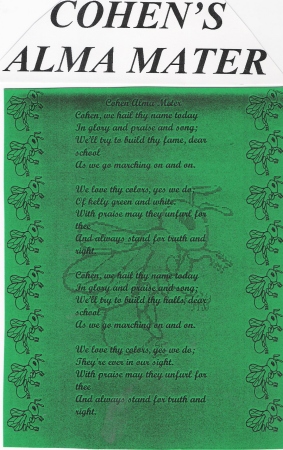 COHEN'S
ALMA MATER
Cohen Alma Mater
Cohen, we hail thy name today
In glory and praise and song;
We'll try to build thy fame, dear
school
As we go marching on and on.
We love thy colors, yes we do;
Of kelly green and white.
With praise may they unfurl for
thee
And always stand for truth and
right.
Cohen, we hail thy name today
In glory and praise and song;
We'll try to build thy halls, dear
school
As we go marching on and on.
We love thy colors, yes we do;
They're ever in our sight.
With praise may they unfurl for
thee
And always stand for truth and
right.